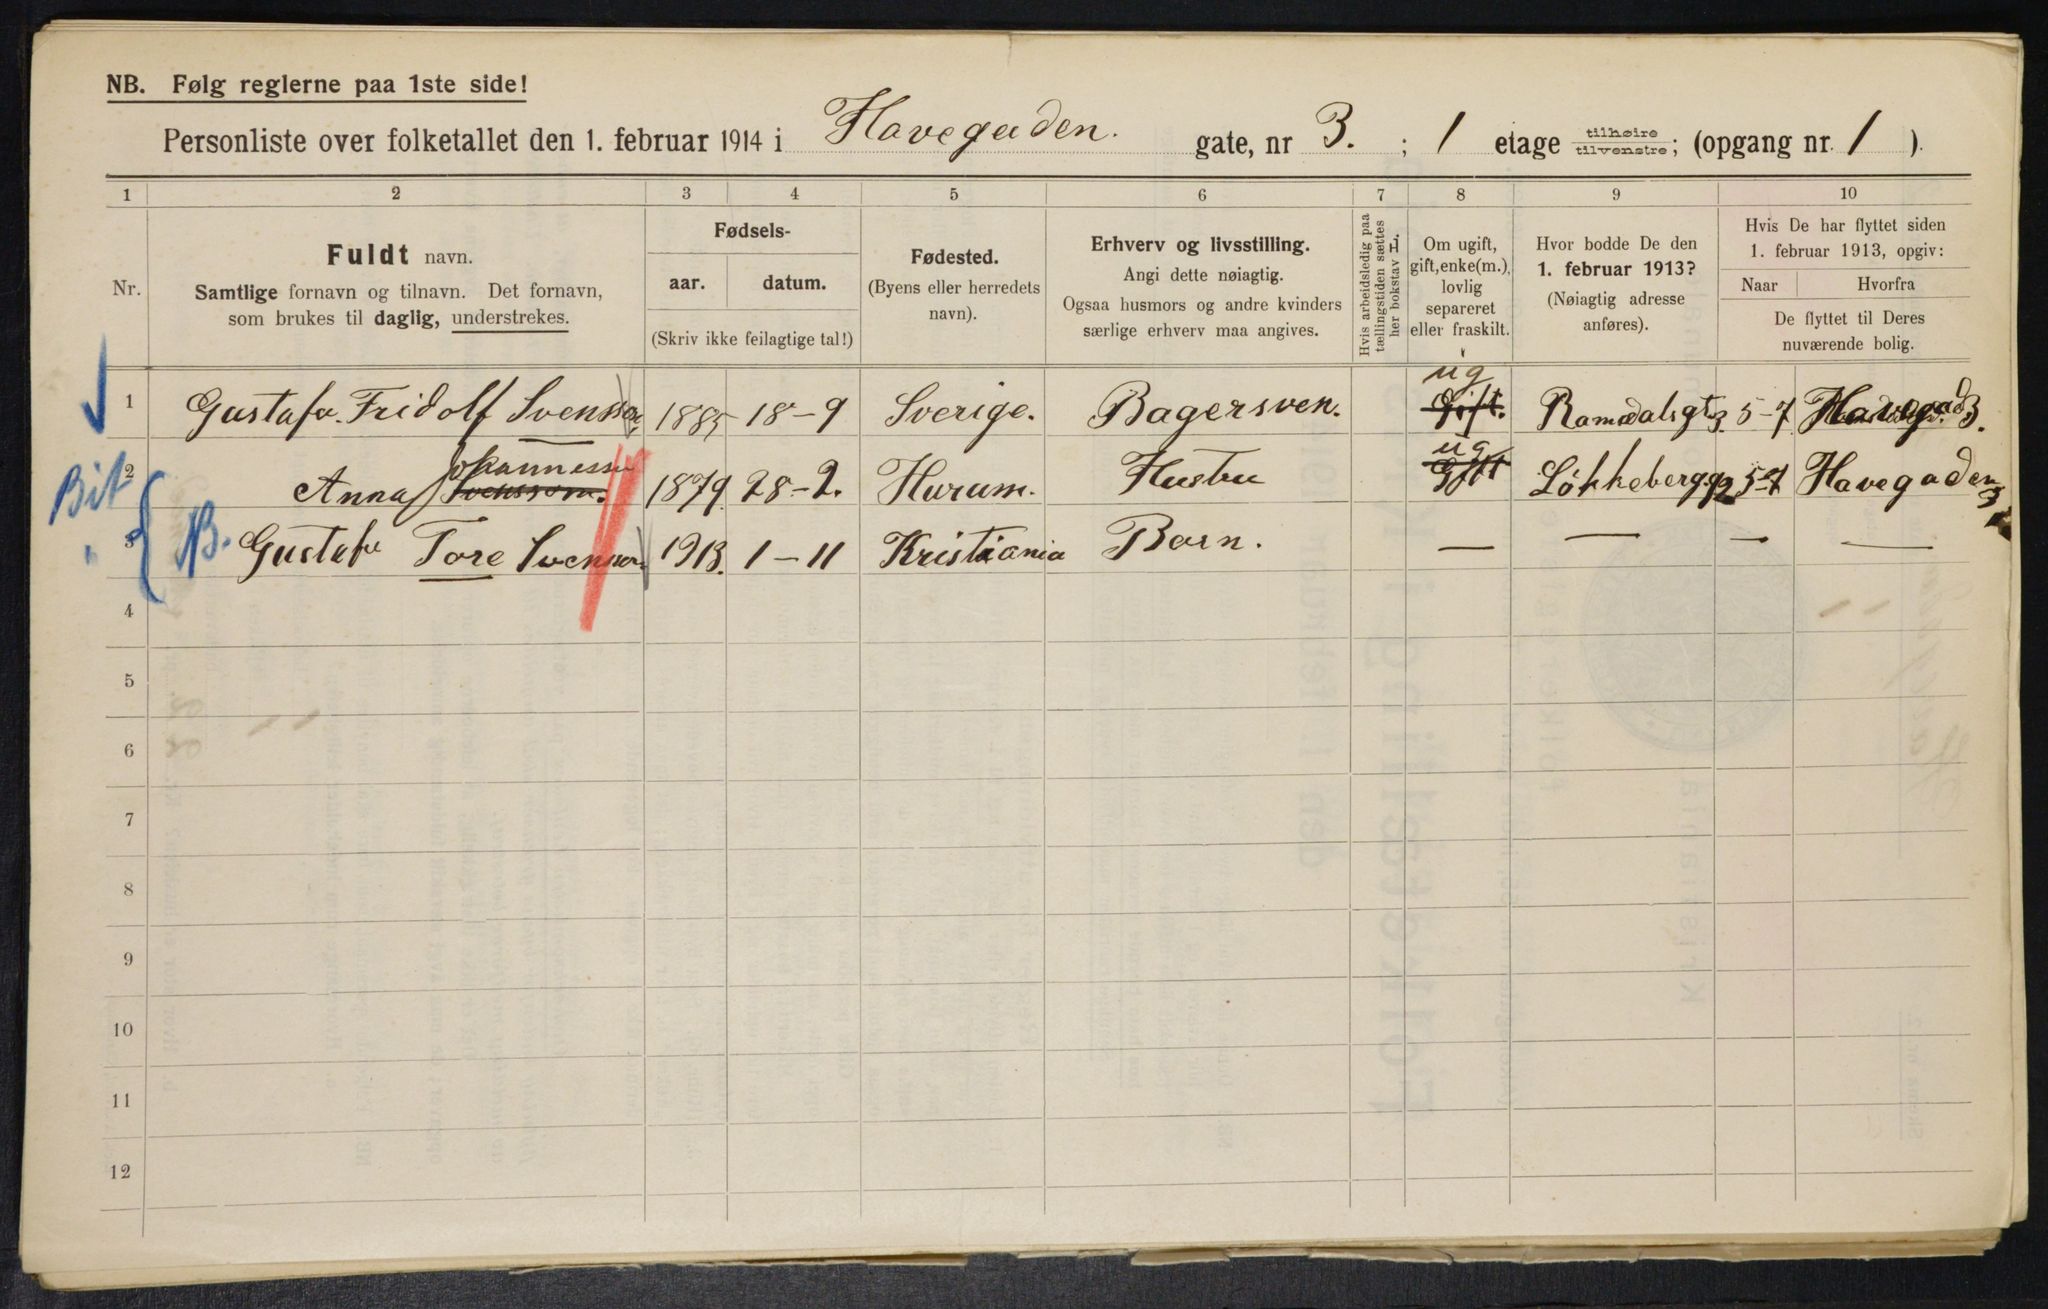 NB. Følg reglerne paa 1ste side!
Personliste over folketallet den 1. februar 1914 i Havegaden. gate, nr 3. ; 1 etage tilhøire tilvenstre; (opgang nr. 1 ).
1 2 3 4 5 6 7 8 9 10
Nr.
Fuldt navn.
Samtlige fornavn og tilnavn. Det fornavn,
som brukes til daglig, understrekes.
Fødsels-
aar. datum.
(Skriv ikke feilagtige tal!)
Fødested.
(Byens eller herredets
navn).
Erhverv og livsstilling.
Angi dette nøiagtig.
Ogsaa husmors og andre kvinders
særlige erhverv maa angives.
Hvis arbeidsledig paa
tællingstiden sættes
her bokstav L.
Om ugift,
gift, enke(m.),
lovlig
separeret
eller fraskilt.
Hvor bodde De den
1. februar 1913?
(Nøiagtig adresse
anføres).
Hvis De har flyttet siden
1. februar 1913, opgiv:
Naar Hvorfra
De flyttet til Deres
nuværende bolig.
ug
1 Gustafv. Fridolf Svensson, 1885 18-9 Sverige. Bagersven. Gift. Romsdalsgt 3. 5-7 Havegad 3.
Bit
Johannessen ug
2 Anna Svensson. 1879 28-2. Hurum. Hustru Gift Løkkebergg 2 5-7 Havegaden 3
" NB.
3 Gustafv Tore Svensson. 1913. 1-11 Kristiania Barn. — — — —
4
5
6
7
8
9
10
11
12